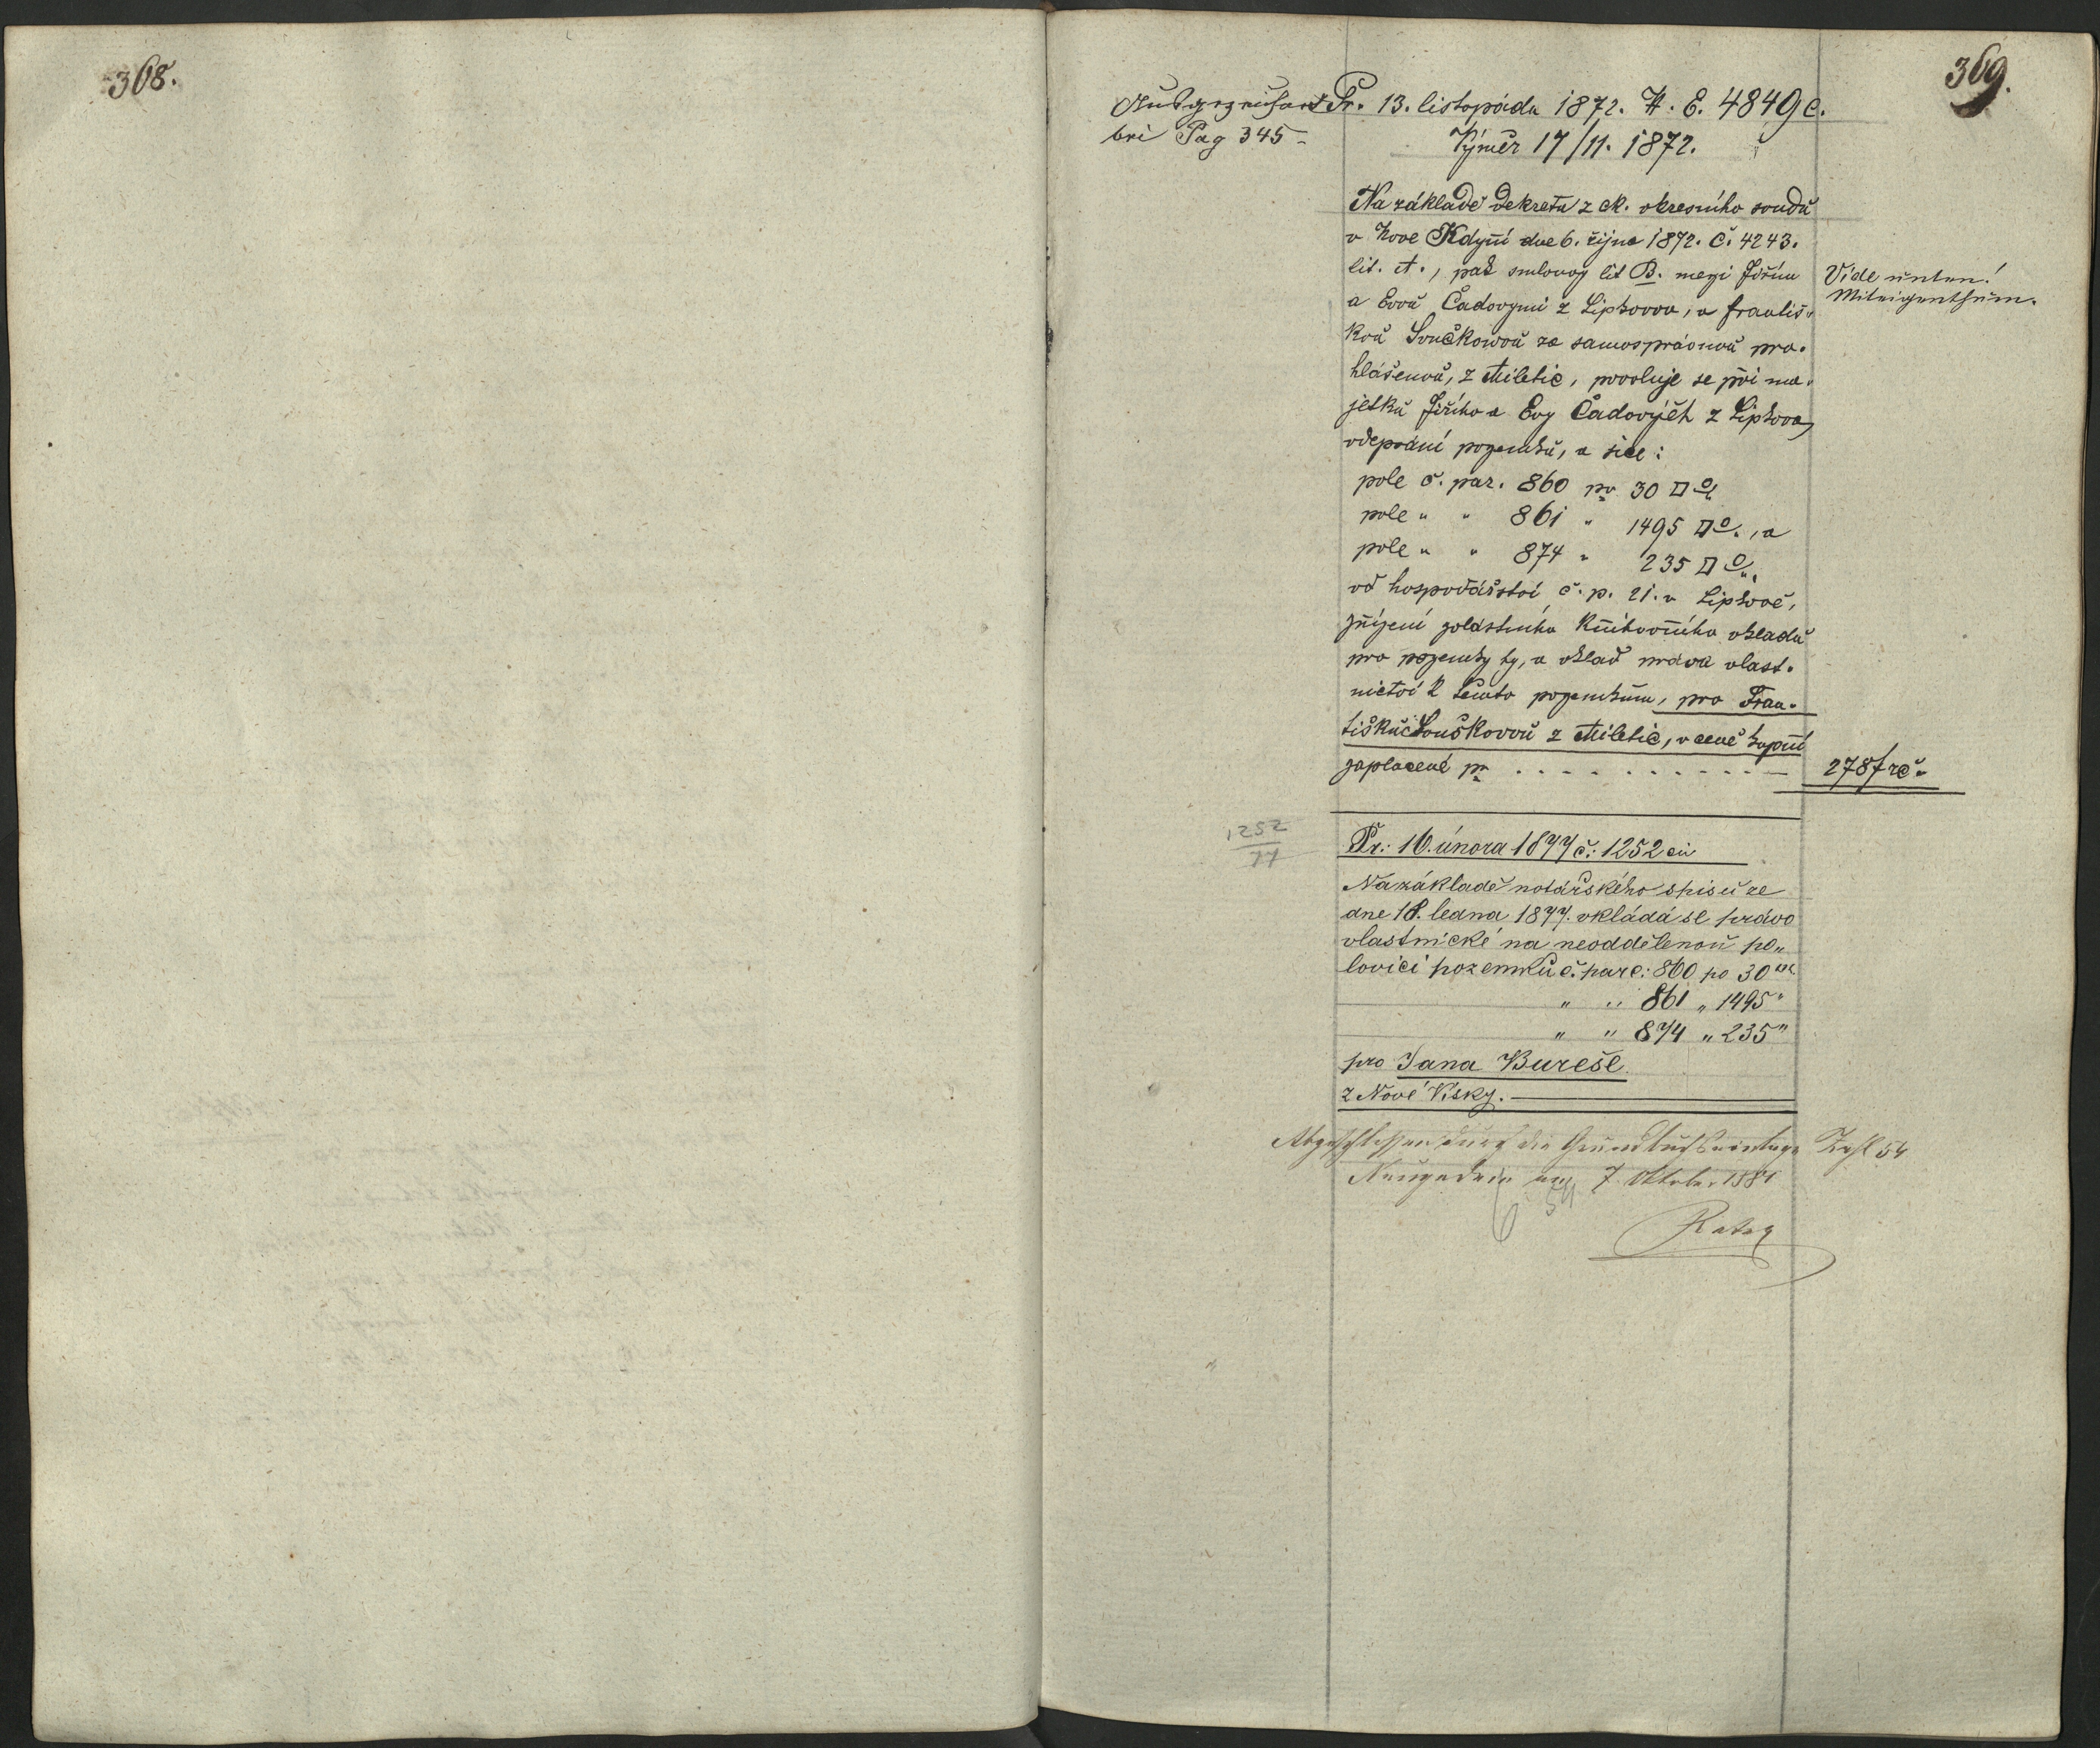 368.
369.
Ausgezeichnet
bei Pag 345
Pr. 13. listopádu 1872. N. E. 4849 c.
Výměr 17/11. 1872.
Na základě dekretu z ck. okresního soudu
v Nové Kdyni dne 6. října 1872. č. 4243.
lit. A., pak smlouvy lit B. mezi Jiřím
a Evou Čadovymi z Lipkova, a františ-
kou Součkovou za samosprávnou pro-
hlášenou, z Miletic, povoluje se při ma-
jetku Jiřího a Evy Čadových z Lipkova,
odepsání pozemků, a sice:
pole č. par. 860 pr 30 □°
pole " " 861 " 1495 □°., a
pole " " 874 " 235 □°.,
od hospodářství č. p. 21. v Lipkově,
zřízení zvláštního knihovního vkladu
pro pozemky ty, a vklad práva vlast-
nictví k těmto pozemkům, pro Fran-
tišku Součkovou z Miletic, v ceně kupní
zaplacené pr . . . . . . . . . . —
Vide unten!
Miteigenthum.
2787 rč.
1252
77
Pr.: 16. února 1877 č.: 1252 civ
Na základě notářského spisu ze
dne 18. ledna 1877. vkládá se právo
vlastnické na neoddělenou po„
lovici pozemků č. parc: 860 po 30
" " 861 „ 1495 "
" " 874 „ 235 "
pro Jana Bureše
z Nové Vísky.
Abgeschlossen durch die Grundbuchseinlage Zahl 54
Neugedein am 7. Oktober 1881
54